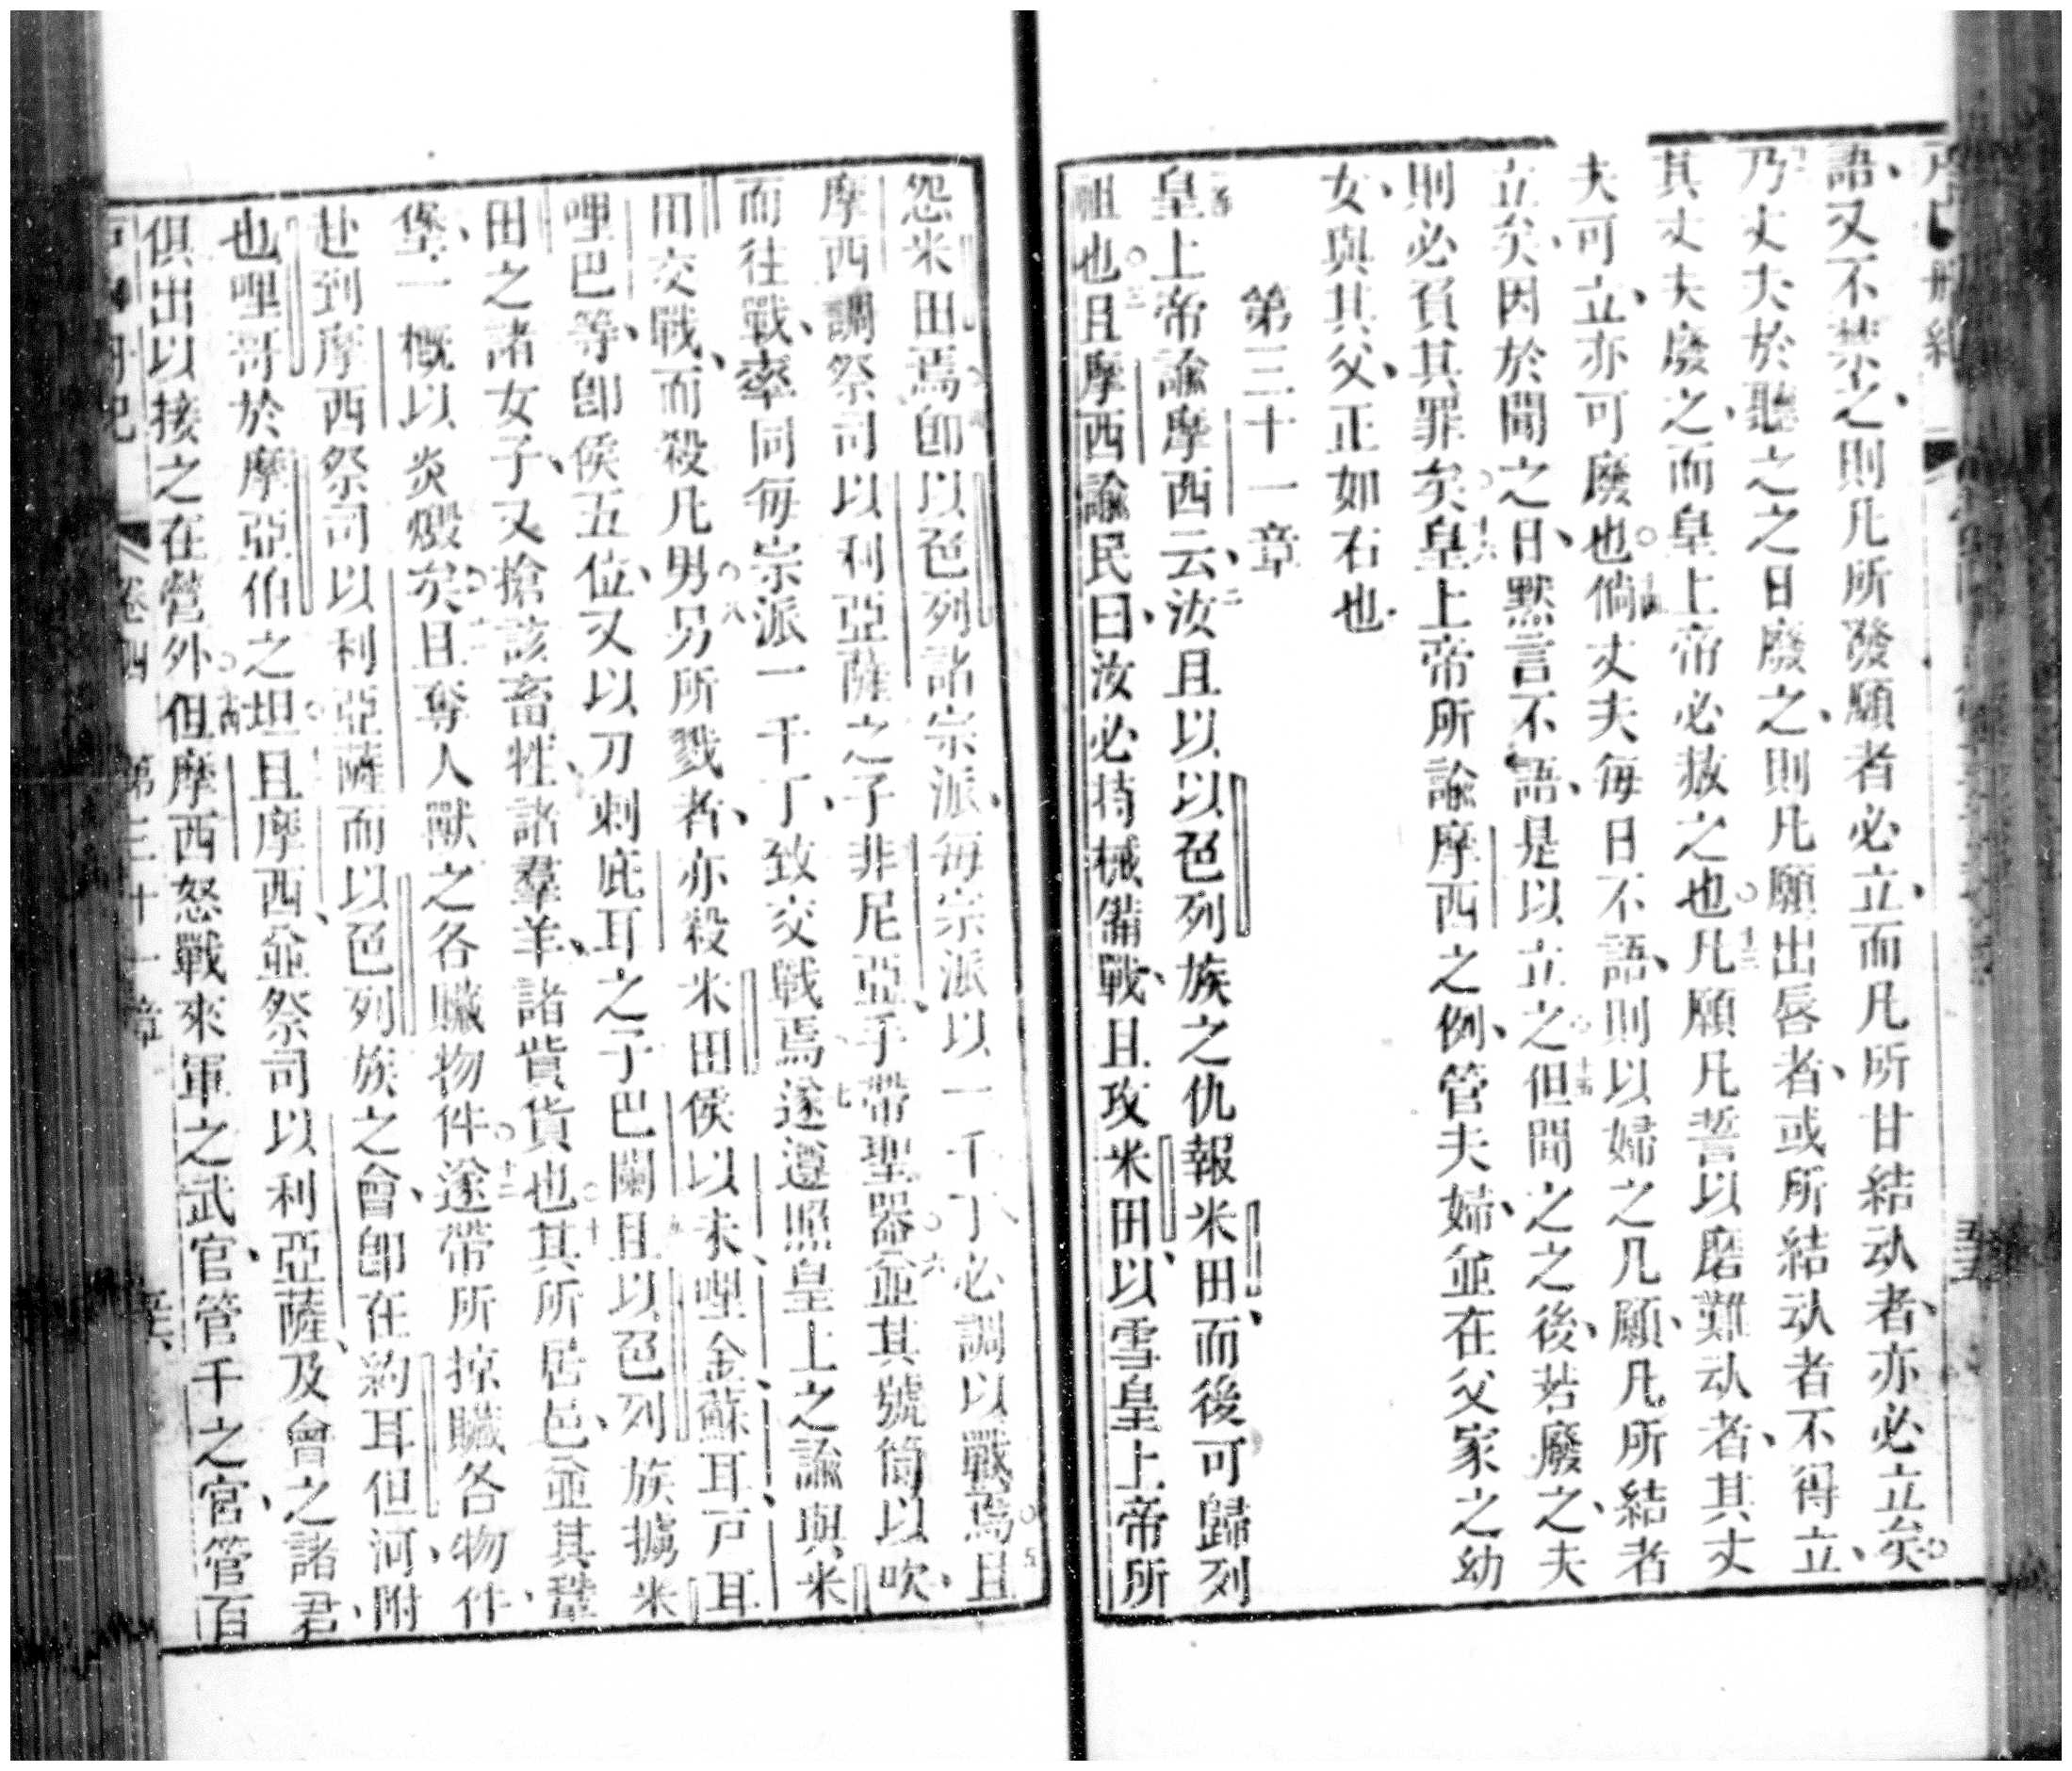 語、又不禁之、則凡所發願者必立、而凡所甘結劝者、亦必立矣、○
十二乃丈夫於聽之之日廢之、則凡願出唇者、或所結劝者不得立、
其丈夫廢之、而皇上帝必赦之也○十三凡願凡誓以磨難劝者、其丈
夫可立、亦可廢也○十四倘丈夫每日不語、則以婦之凡願、凡所結者
立矣、因於聞之日、默言不語、是以立之○十五但聞之之後、若廢之、夫
則必負其罪矣○十六皇上帝所諭摩西之例、管夫婦、並在父家之幼
女、與其父、正如右也
第三十一章
皇上帝諭摩西云、二汝且以以色列族之仇報米田、而後可歸列
祖也○三且摩西諭民曰、汝必持械備戰、且攻米田、以雪皇上帝所
怨米田焉、四卽以色列諸宗派、每宗派以一千丁、必調以戰焉○五且
摩西調祭司以利亞薩之子非尼亞、手帶聖器並其號筒以吹、○六
而往戰、率同每宗派一千丁、致交戰焉、七遂遵照皇上之諭與米
田交戰、而殺凡男○八另所戮者、亦殺米田侯以未、哩金、蘇耳、戸耳
哩巴等、卽侯五位、又以刀刺庇耳之子巴闌○九且以色列族擄米
田之諸女子、又搶該畜牲、諸羣羊、諸貲貨也○十其所居邑、並其鞏
堡、一概以炎燬矣○十一且奪人獸之各贓物件○十二遂帶所掠贓各物件、
赴到摩西祭司以利亞薩而以色列族之會、卽在約耳但河、附
也哩哥於摩亞伯之坦○十三且摩西、並祭司以利亞薩、及會之諸君、
俱出以接之在營外○十四但摩西怒戰來軍之武官、管千之官、管百
卷四 第三十一章